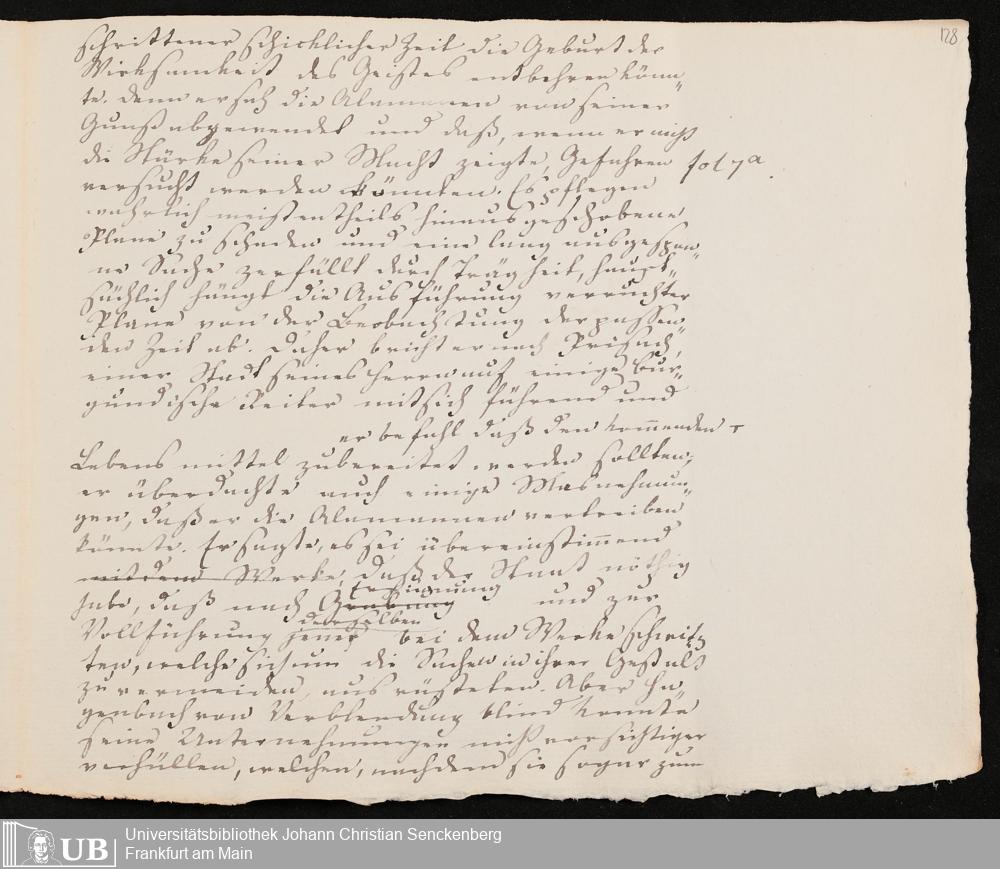 128
schrittener schicklicher Zeit die Geburt der
Wirksamkeit des Geistes entbehren könn„
te. denn er sah die Alamannen von seiner
Gunst abgewendet und daß, wenn er nicht
die Stärke seiner Macht zeigte, Gefahren
fol 7a.
versucht werden könnten. Es pflegen
wahrlich meistentheils hinausgeschobene
Plane zu schaden und eine lang ausgespon„
ne Sache zerfällt durch Trägheit, haupt„
sächlich hängt die Ausführung verruchter
Plane von der Beobachtung der passen„
den Zeit ab. Daher bricht er nach Prisach,
einer Stadt seines Herrn auf einige bur„
gundische Reiter mit sich führend und
er befahl daß den kom̄enden
Lebensmittel zubereitet werden sollten;
er überdachte auch einige Masnehmun„
gen, daß er die Alamannen vertreiben
könnte. Er sagte, es sei übereinstim̄end
mit dem Werke, daß der Staat nöthig
habe, daß nach Grabung und zur
Vollführung jener derselben bei dem Werke schrit„
ten, welche sich um die Sachen in ihrer Gestalt
zu vermeiden, aus rüsteten. Aber Ha„
genbach von Verblendung blind konnte
seine Unternehmungen nicht vorsichtiger
verhüllen, welchen, nachdem sie sogar zum
UB Universitätsbibliothek Johann Christian Senckenberg
Frankfurt am Main